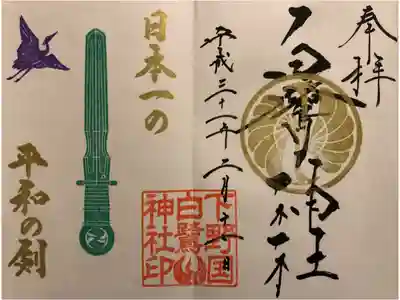 奉拝
白鷺神社
平成三十一年二月
下野国
白鷺
神社印
日本一の
平和の剣